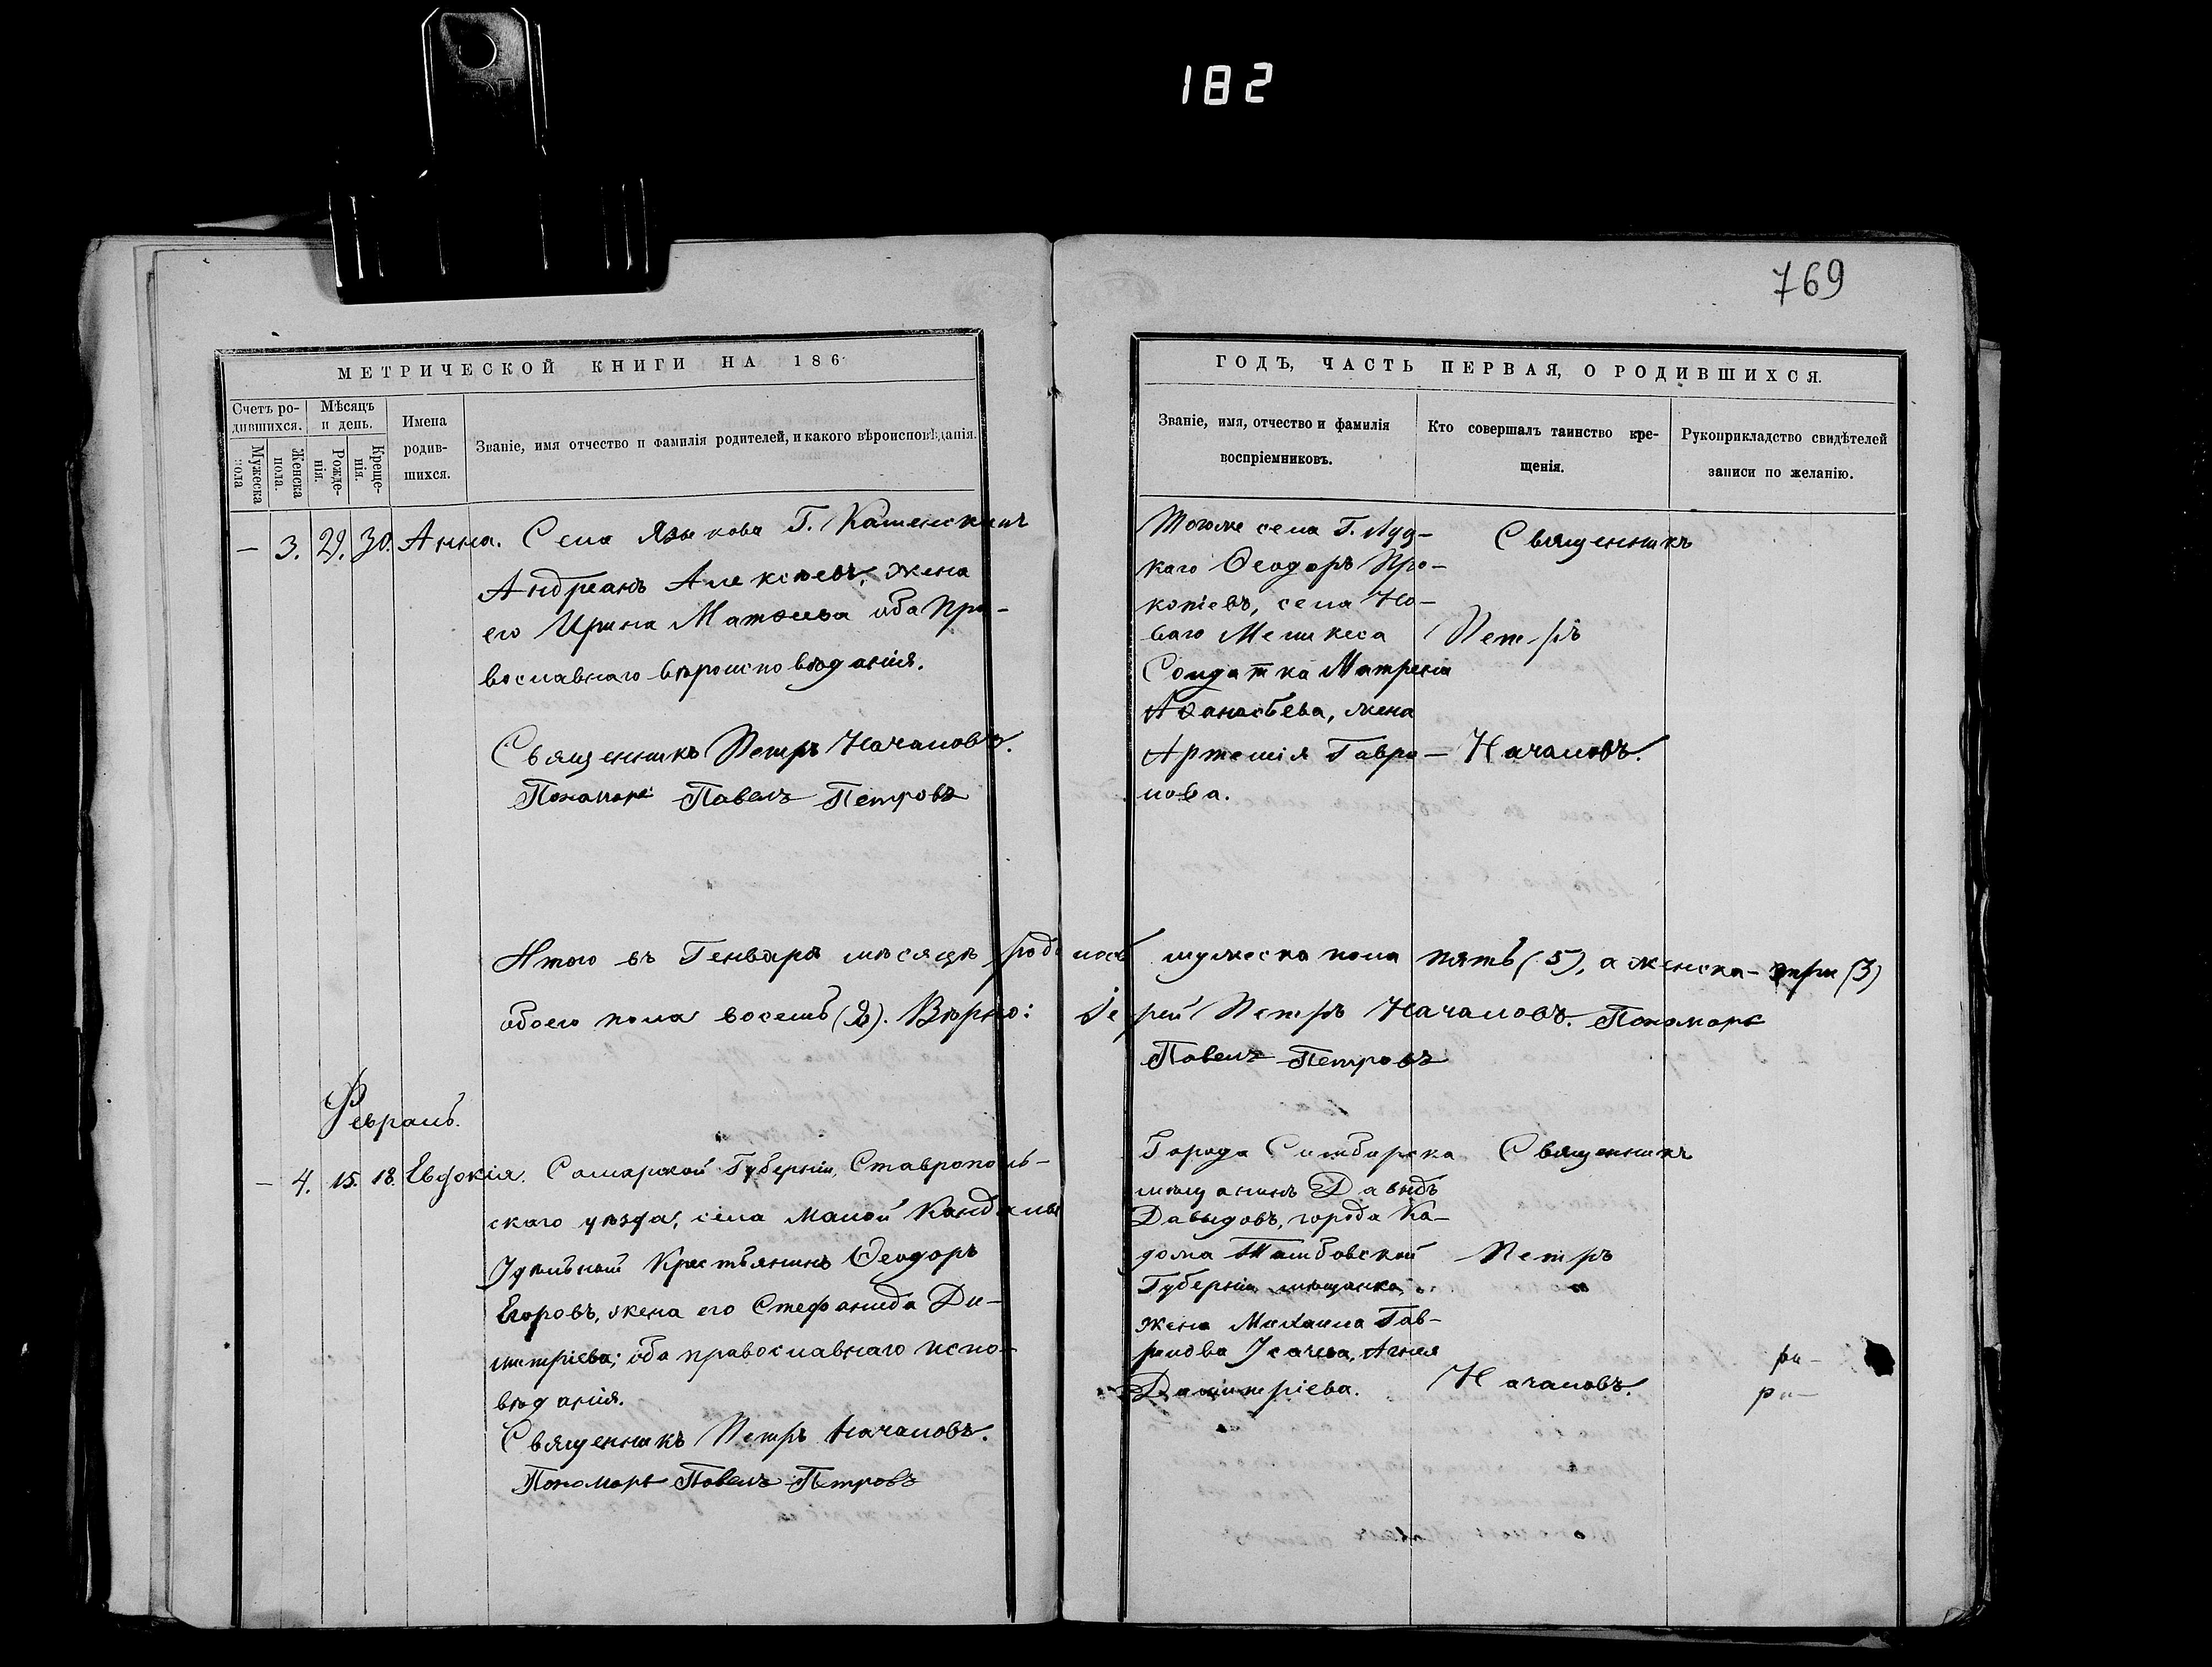 182
769
МЕТРИЧЕСКОЙ КНИГИ НА 186
Счетъ ро-
дившихся.
Мѣсяцъ
и день.
Имена
родив-
шихся.
Званіе, имя отчество и фамилія родителей, и какого вѣроисповѣданія.
Мужеска
пола
Женска
пола.
Рожде-
нія.
Креще-
нія.
— 3. 29. 30. Анна. Села Языкова Г.
Андреанъ Алексѣевъ, жена
его Ирина Матѳеева оба пра-
вославнаго вѣроисповѣданія.
Священникъ Петръ Началовъ.
Пономарь Павелъ Петровъ
Итого въ Генварѣ мѣсяцѣ родилось мужеска пола пять (5), а женска — три (3)
обоего пола восемь (8). Вѣрно: Іерей Петръ Началовъ. Пономарь
Павелъ Петровъ
Февраль.
— 4. 15. 18. Евдокія. Самарской Губерніи, Ставрополь-
скаго уѣзда, села Малой Кандалы
Удѣльной Крестьянинъ Ѳеодоръ
Егоровъ, жена его Стефанида Ди-
митріева; оба православнаго испо-
вѣданія.
Священникъ Петръ Началовъ.
Пономарь Павелъ Петровъ
ГОДЪ, ЧАСТЬ ПЕРВАЯ, О РОДИВШИХСЯ.
Званіе, имя, отчество и фамилія
воспріемниковъ.
Кто совершалъ таинство кре-
щенія.
Рукоприкладство свидѣтелей
записи по желанію.
Тогоже села Г.
Ѳеодоръ Про-
копіевъ, села Но-
ваго
Солдатка Матрена
Аѳанасьева, жена
Артемія Гаври-
лова.
Священникъ
Петръ
Началовъ.
Города Симбирска
мѣщанинъ Давыдъ
Давыдовъ, города Ка-
дома Тамбовской
Губерніи мѣщанка,
жена Михаила Гав-
рилова Усачева,
Димитріева.
Священникъ
Петръ
Началовъ.
ри-
ри-